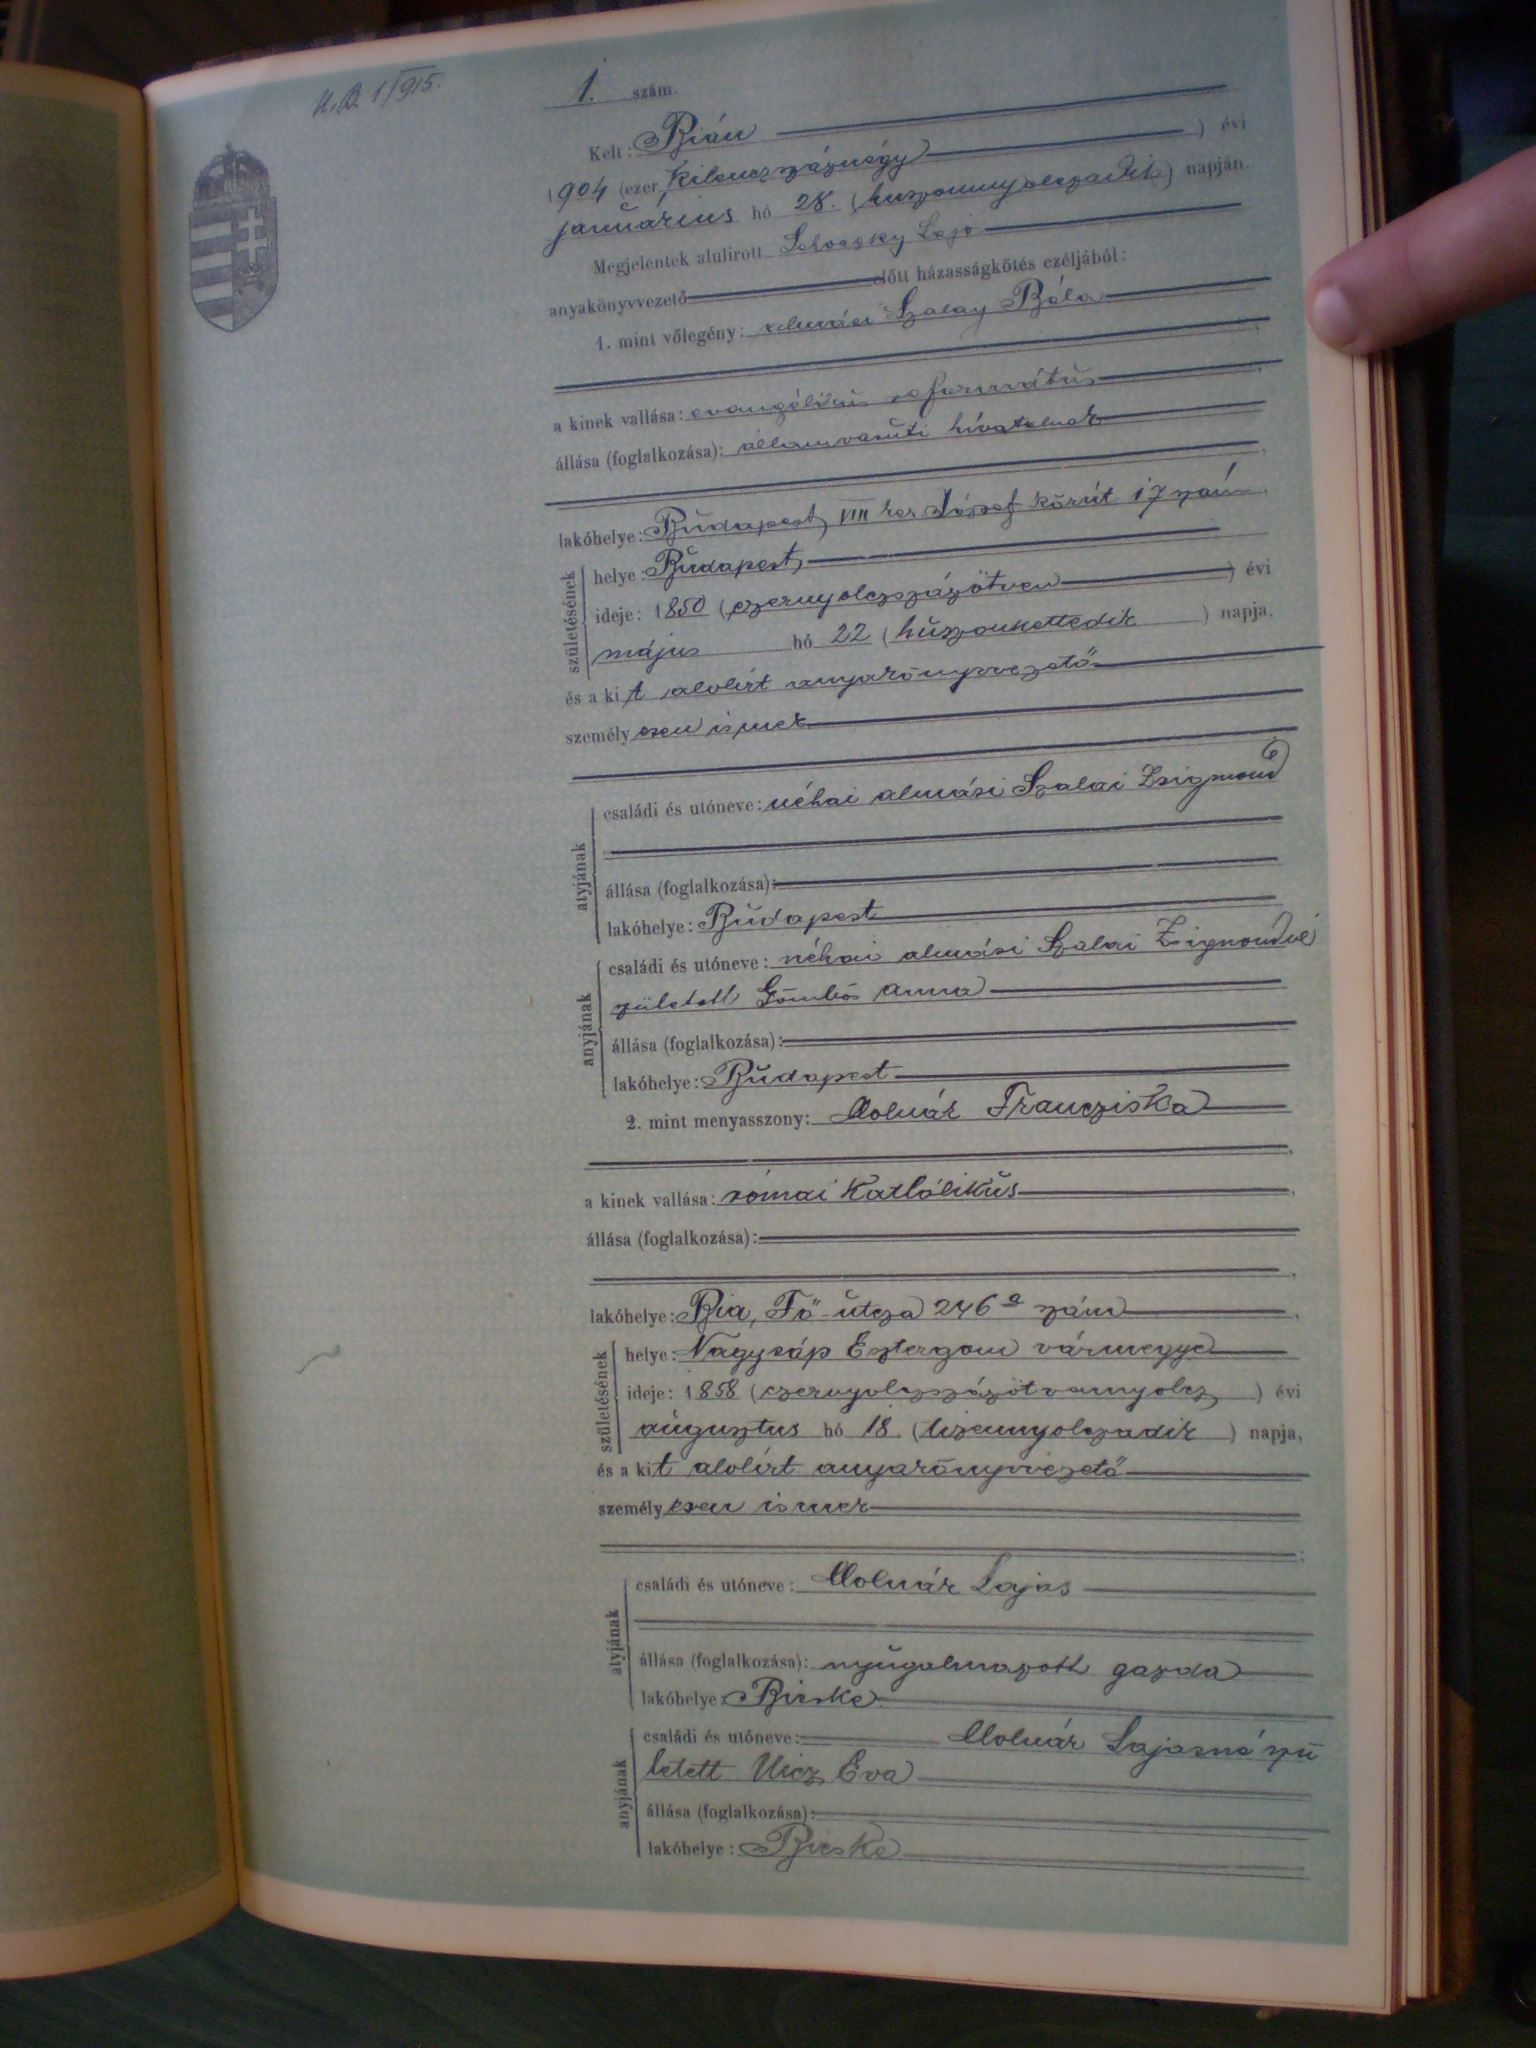 1/915.
1. szám.
Kelt: Bián
1904 (ezerkilenczszáznégy) évi
január ius hó 28. (huszonnyolczadik) napján.
Megjelentek alulirott Lajo
anyakönyvvezető előtt házasságkötés czéljából:
1. mint vőlegény: almási Szalay Béla
a kinek vallása: evangélikus református
állása (foglalkozása): államvasuti hivatalnok
lakóhelye: Budapest, VIII ker József körút 17 szám
születésének
helye: Budapest,
ideje: 1850 (ezernyolczszázötven) évi
május hó 22 (húszonkettedik) napja,
és a kit alolirt anyakönyvvezető
személyesen ismer
atyjának
családi és utóneve: néhai almási Szalai Zsigmond
állása (foglalkozása):
lakóhelye: Budapest
anyjának
családi és utóneve: néhai almási Szalai Zsigmondné
született Gömbös Anna
állása (foglalkozása):
lakóhelye: Budapest
2. mint menyasszony: Molnár Francziska
a kinek vallása: római katholikus
állása (foglalkozása):
lakóhelye: Bia, Fő-utcza 246a szám
születésének
helye: Nagysáp Esztergom vármegye
ideje: 1858 (ezernyolczszázötvennyolcz) évi
augusztus hó 18. (tizennyolczadik) napja,
és a kit alolírt anyakönyvvezető
személyesen ismer
atyjának
családi és utóneve: Molnár Lajos
állása (foglalkozása): nyugalmazott gazda
lakóhelye: Bicske
anyjának
családi és utóneve: Molnár Lajosné szü
letett Éva
állása (foglalkozása):
lakóhelye: Bicske